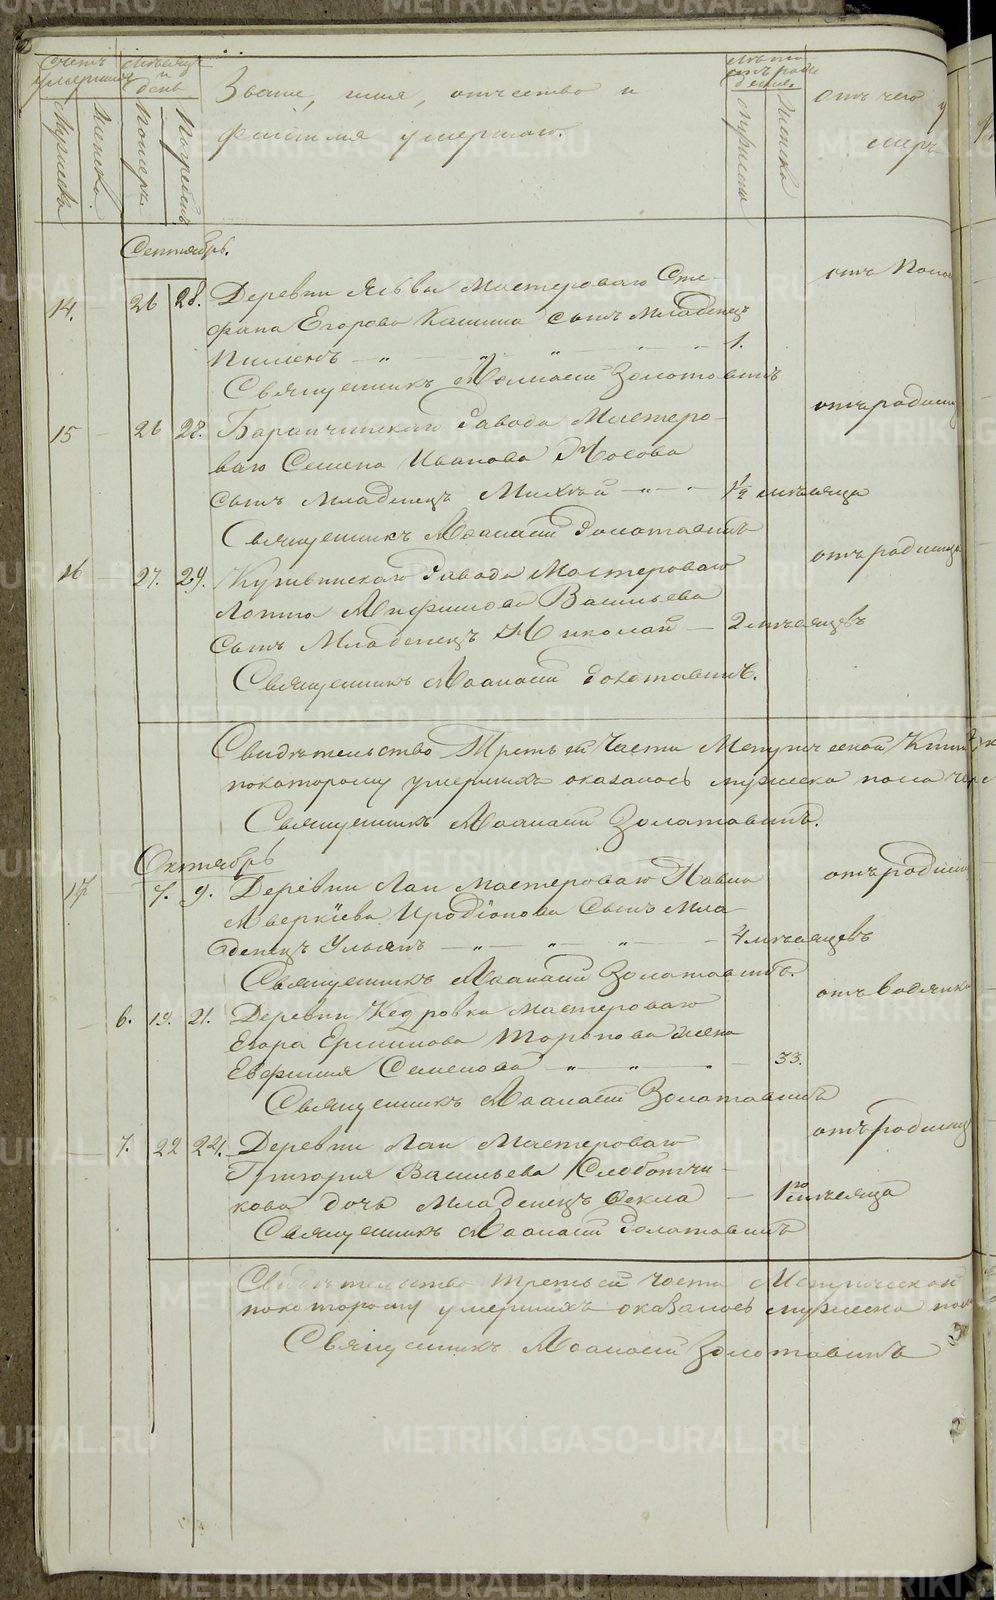 Счетъ умершихъ
Мужеска
Женска.
Мѣсяцъ и день
Померъ.
Погребенъ
Званіе, имя, отчество и
фамилія умершаго.
Мужеска
Женска
Отъ чего умеръ
Сентябрь.
14. 26 28. Деревни Ясьвы Мастероваго Сте-
фана Егорова Кашина сынъ Младенецъ
Пименъ — „ — „ — „ — 1.
Священникъ Аѳанасій Золотавинъ
15 26 28. Баранчинскаго Завода Мастеро-
ваго Семена Иванова Носова
сынъ Младенецъ Михей — „ — 1½ мѣсяца
отъ родимца
Священникъ Аѳанасій Золотавинъ
16 27. 29. Кушвинскаго Завода Мастероваго
отъ родимца
Логина Анфимова Васильева
Сынъ Младенецъ Николай — 2 мѣсяцевъ
Священникъ Аѳанасій Золотавинъ.
Свидѣтельство Третьей Части Метрической Книги
покоторому умершихъ оказалось мужеска пола
Священникъ Аѳанасій Золотавинъ.
Октябрь
17 7. 9. Деревни Лаи мастероваго Павла
отъ родимца
Аверкіева Иродіонова Сынъ Мла-
денецъ Ульянъ — „ — „ — „ — 4 мѣсяцевъ
Священникъ Аѳанасій Золотавинъ.
6. 19. 21. Деревни Кедровки мастероваго
отъ водянки
Егора Ермилова Торопова жена
Евфимія Семенова — „ — „ — 33.
Священникъ Аѳанасій Золотавинъ
7. 22 24. Деревни Лаи Мастероваго
отъ родимца
Григорія Васильева Слободчи-
кова дочь Младенецъ Ѳекла — 1го мѣсяца
Священникъ Аѳанасій Золотавинъ
Свидѣтельство третьей части Метрической
покоторому умершихъ оказалось мужеска пола
Священникъ Аѳанасій Золотавинъ
METRIKI.GASO-URAL.RU